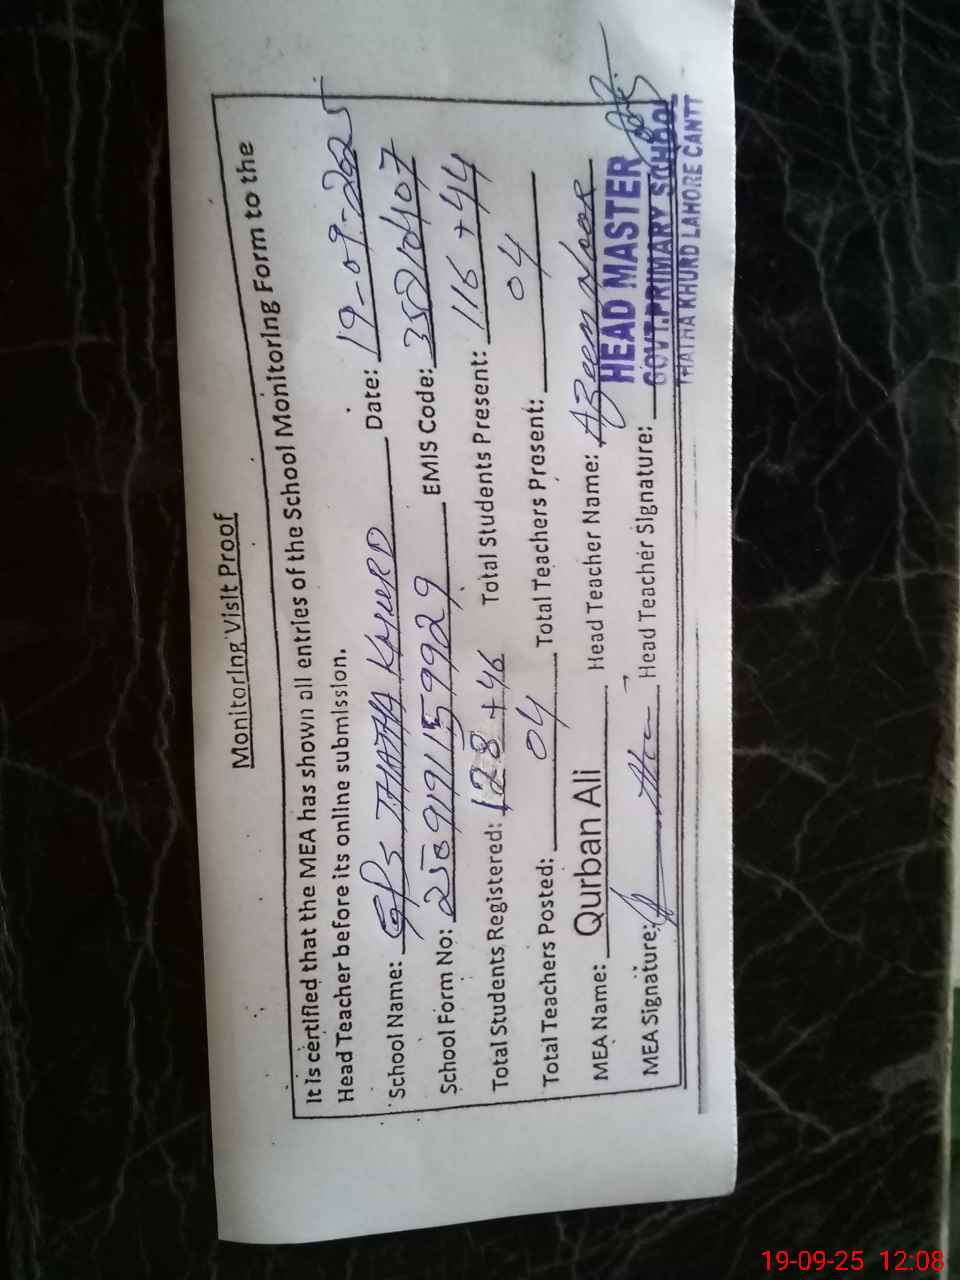 Monitoring Visit Proof
It is certified that the MEA has shown all entries of the School Monitoring Form to the
Head Teacher before its online submission.
School Name: GPS THATHA KHURD Date: 19-09-2025
School Form No: EMIS Code:
Total Students Registered: 128 + 46 Total Students Present: 116 + 44
Total Teachers Posted: 04 Total Teachers Present: 04
MEA Name: Qurban Ali Head Teacher Name: Azeem Noor
MEA Signature: Head Teacher Signature:
HEAD MASTER
GOVT.PRIMARY SCHOOL
THATHA KHURD LAHORE CANTT
19-09-25 12:08